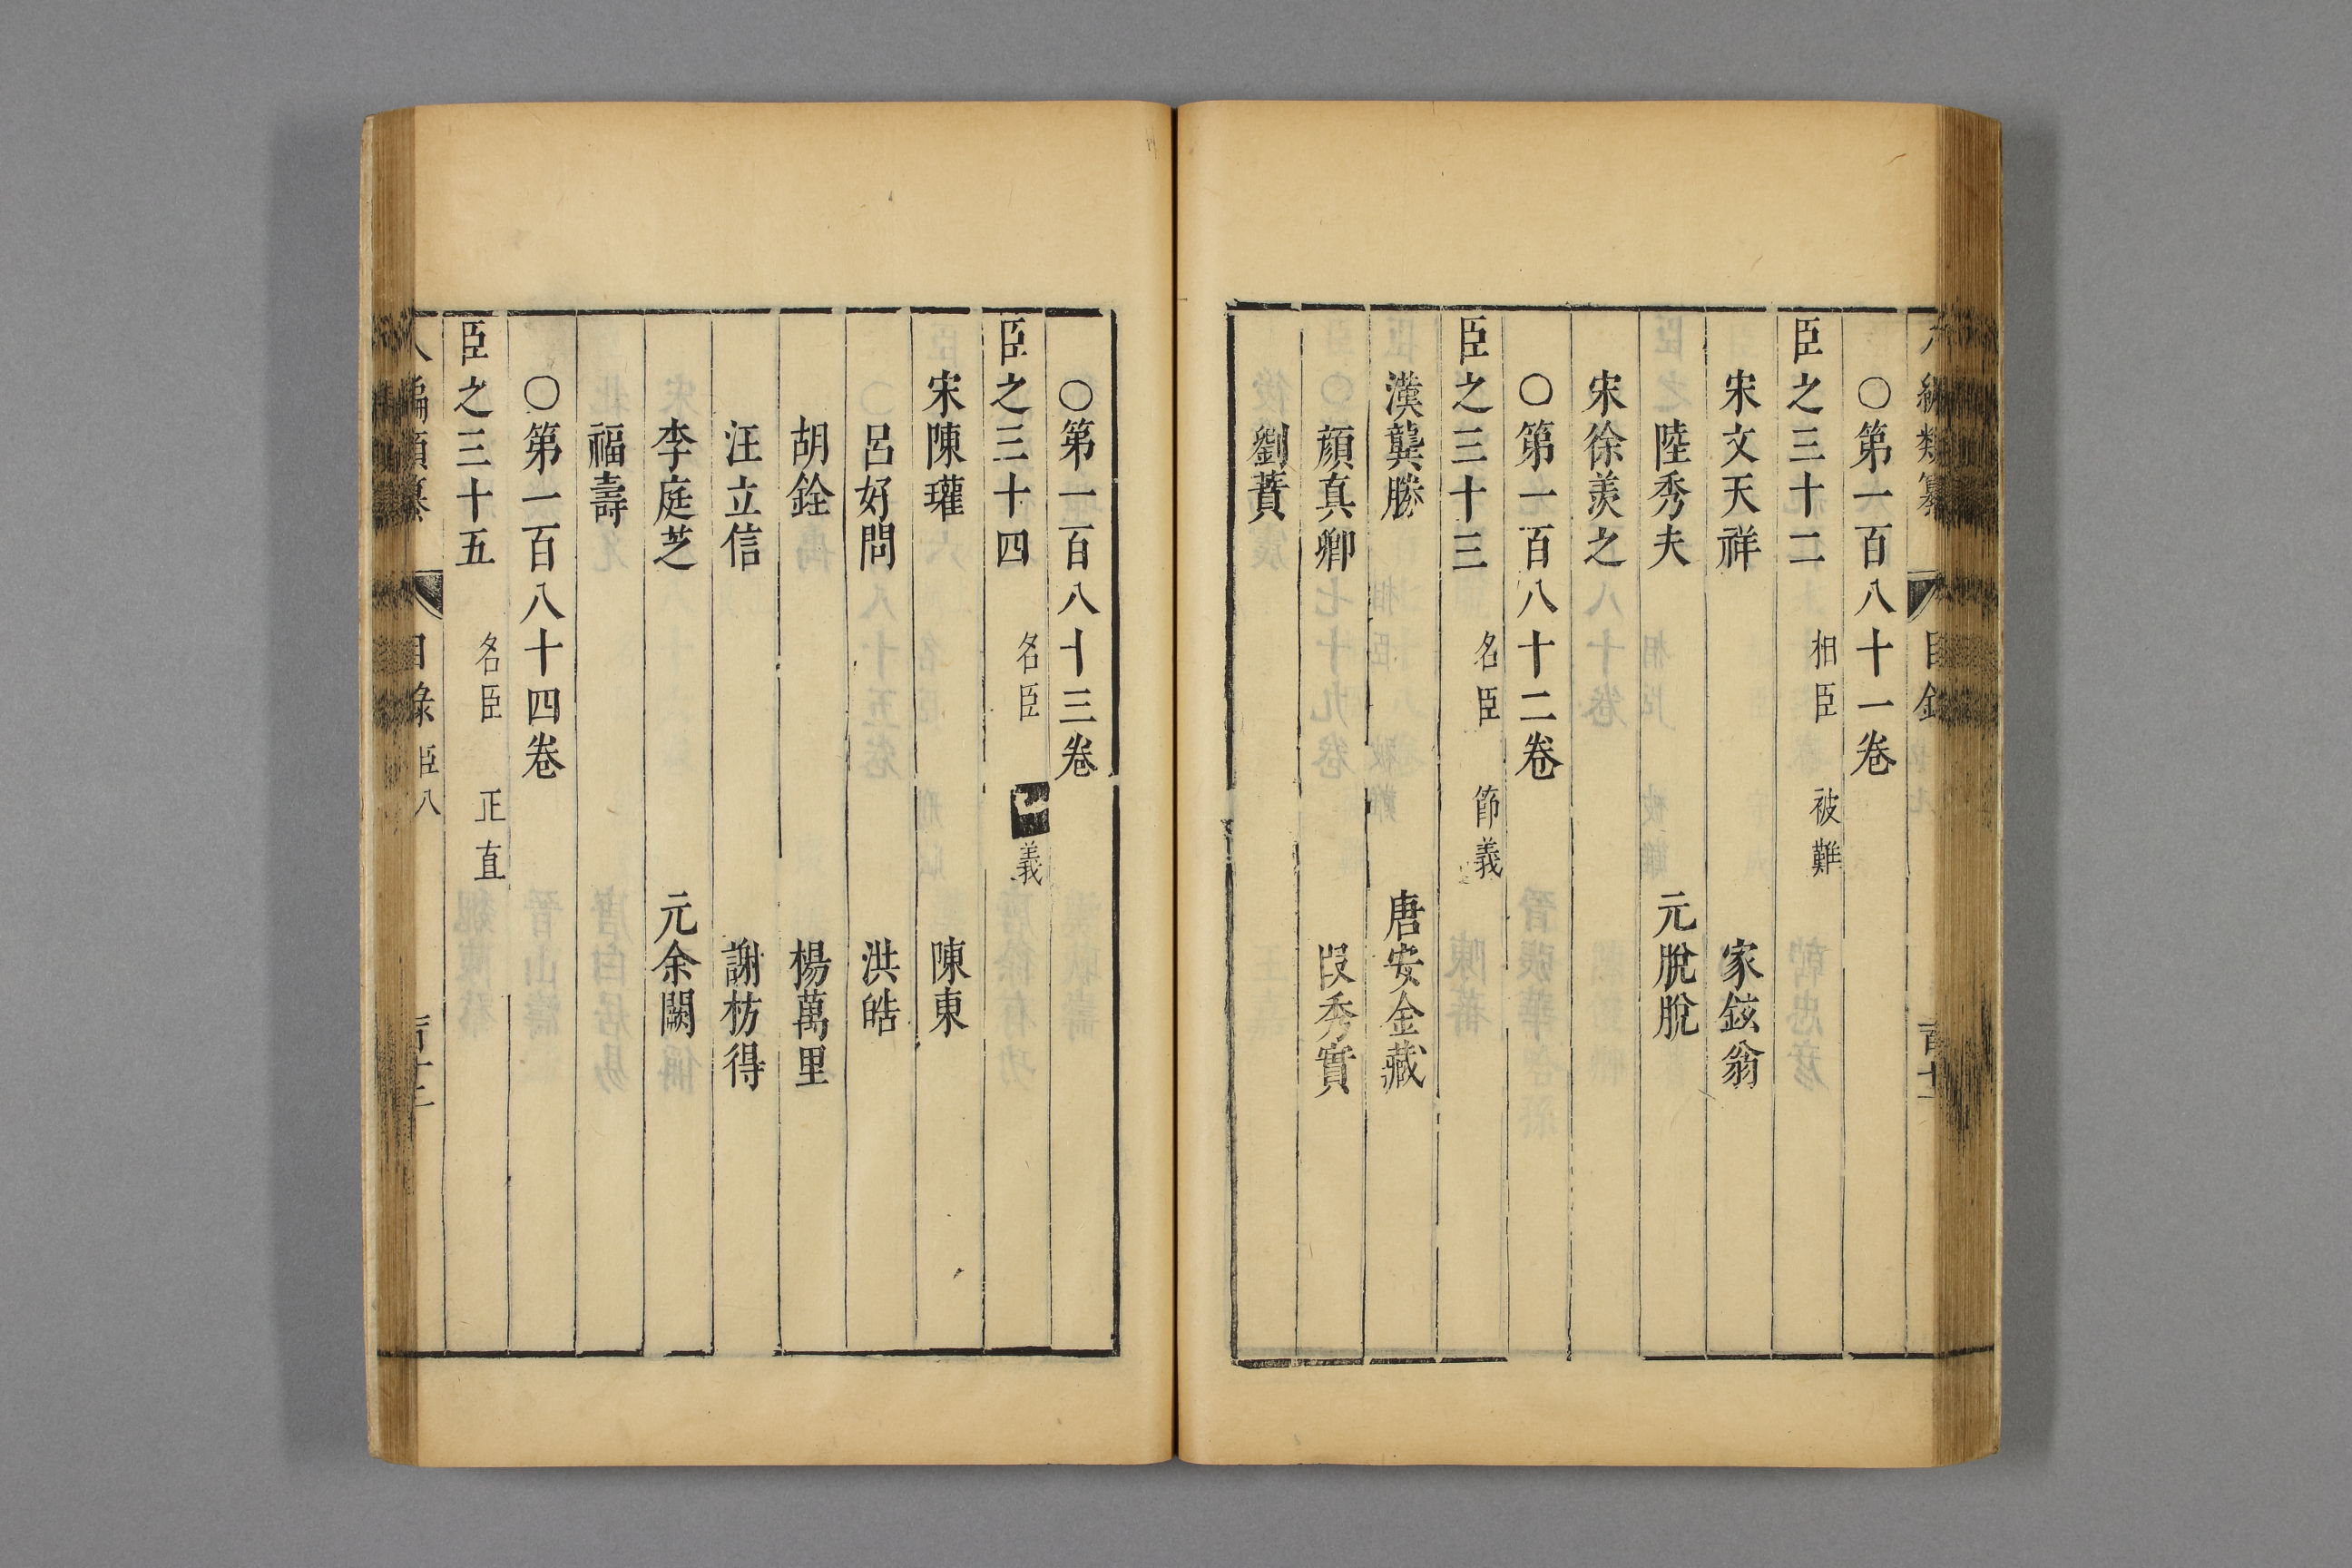 編類纂 目錄
○第一百八十一卷
臣之三十二 相臣 被難
宋文天祥 家鉉翁
陸秀夫 元脫脫
宋徐羨之
○第一百八十二卷
臣之三十三 名臣 節義
漢龔勝 唐安金藏
顔真卿 段秀實
劉蕡
○第一百八十三卷
臣之三十四 名臣 義
宋陳瓘 陳東
呂好問 洪皓
胡銓 楊萬里
汪立信 謝枋得
李庭芝 元余闕
福壽
○第一百八十四卷
臣之三十五 名臣 正直
八編類纂 目錄 臣八